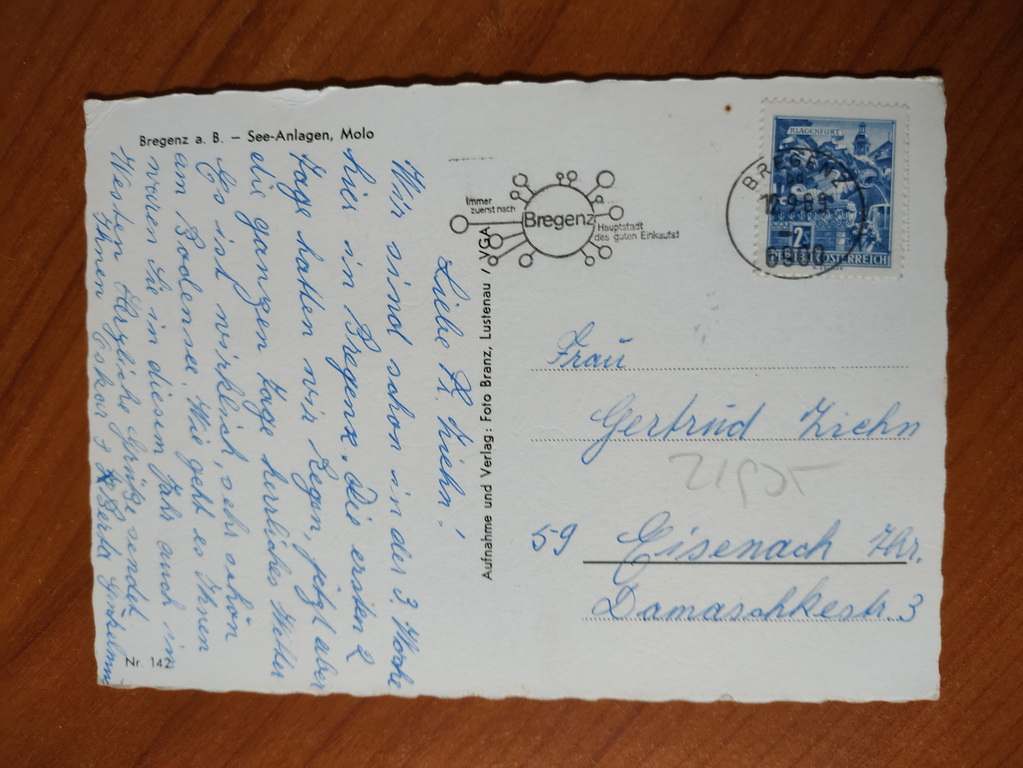 Bregenz a. B. – See-Anlagen, Molo
Liebe Fr. Ziehn!
Wir sind schon in der 3. Woche
hier in Bregenz. Die ersten 2
Tage hatten wir Regen, jetzt aber
die ganzen Tage herrliches Wetter
Es ist wirklich sehr schön
am Bodensee. Wie geht es Ihnen
waren Sie in diesem Jahr auch im
Westen. Herzliche Grüße sendet
Ihnen Oskar + Berta
Nr. 142
Aufnahme und Verlag: Foto Branz, Lustenau / VGA
Immer
zuerst nach
Bregenz
Hauptstadt
des guten Einkaufs!
BREGENZ
6900
KLAGENFURT
2
REPUBLIK ÖSTERREICH
Frau
Gertrud Ziehn
59 Eisenach Thr.
Damaschkestr. 3